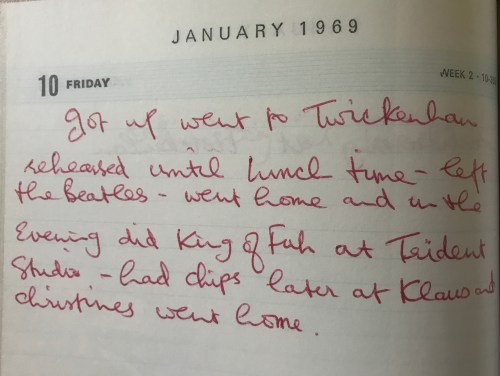 JANUARY 1969
10 FRIDAY
WEEK 2 - 10
got up went to Twickenham
rehearsed until lunch time - left
the Beatles - went home and in the
Evening did King of Fuh at Trident
Studio - had chips later at Klaus and
christines went home.